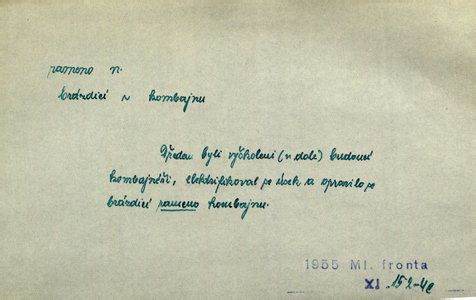 rameno n.
brázdicí u kombajnu
Předem byli vyškoleni (v dole) budoucí
kombajnéři, elektrifikoval se úsek a opravilo se
brázdicí rameno kombajnu.
1955 Ml. fronta
XI. 152-4c